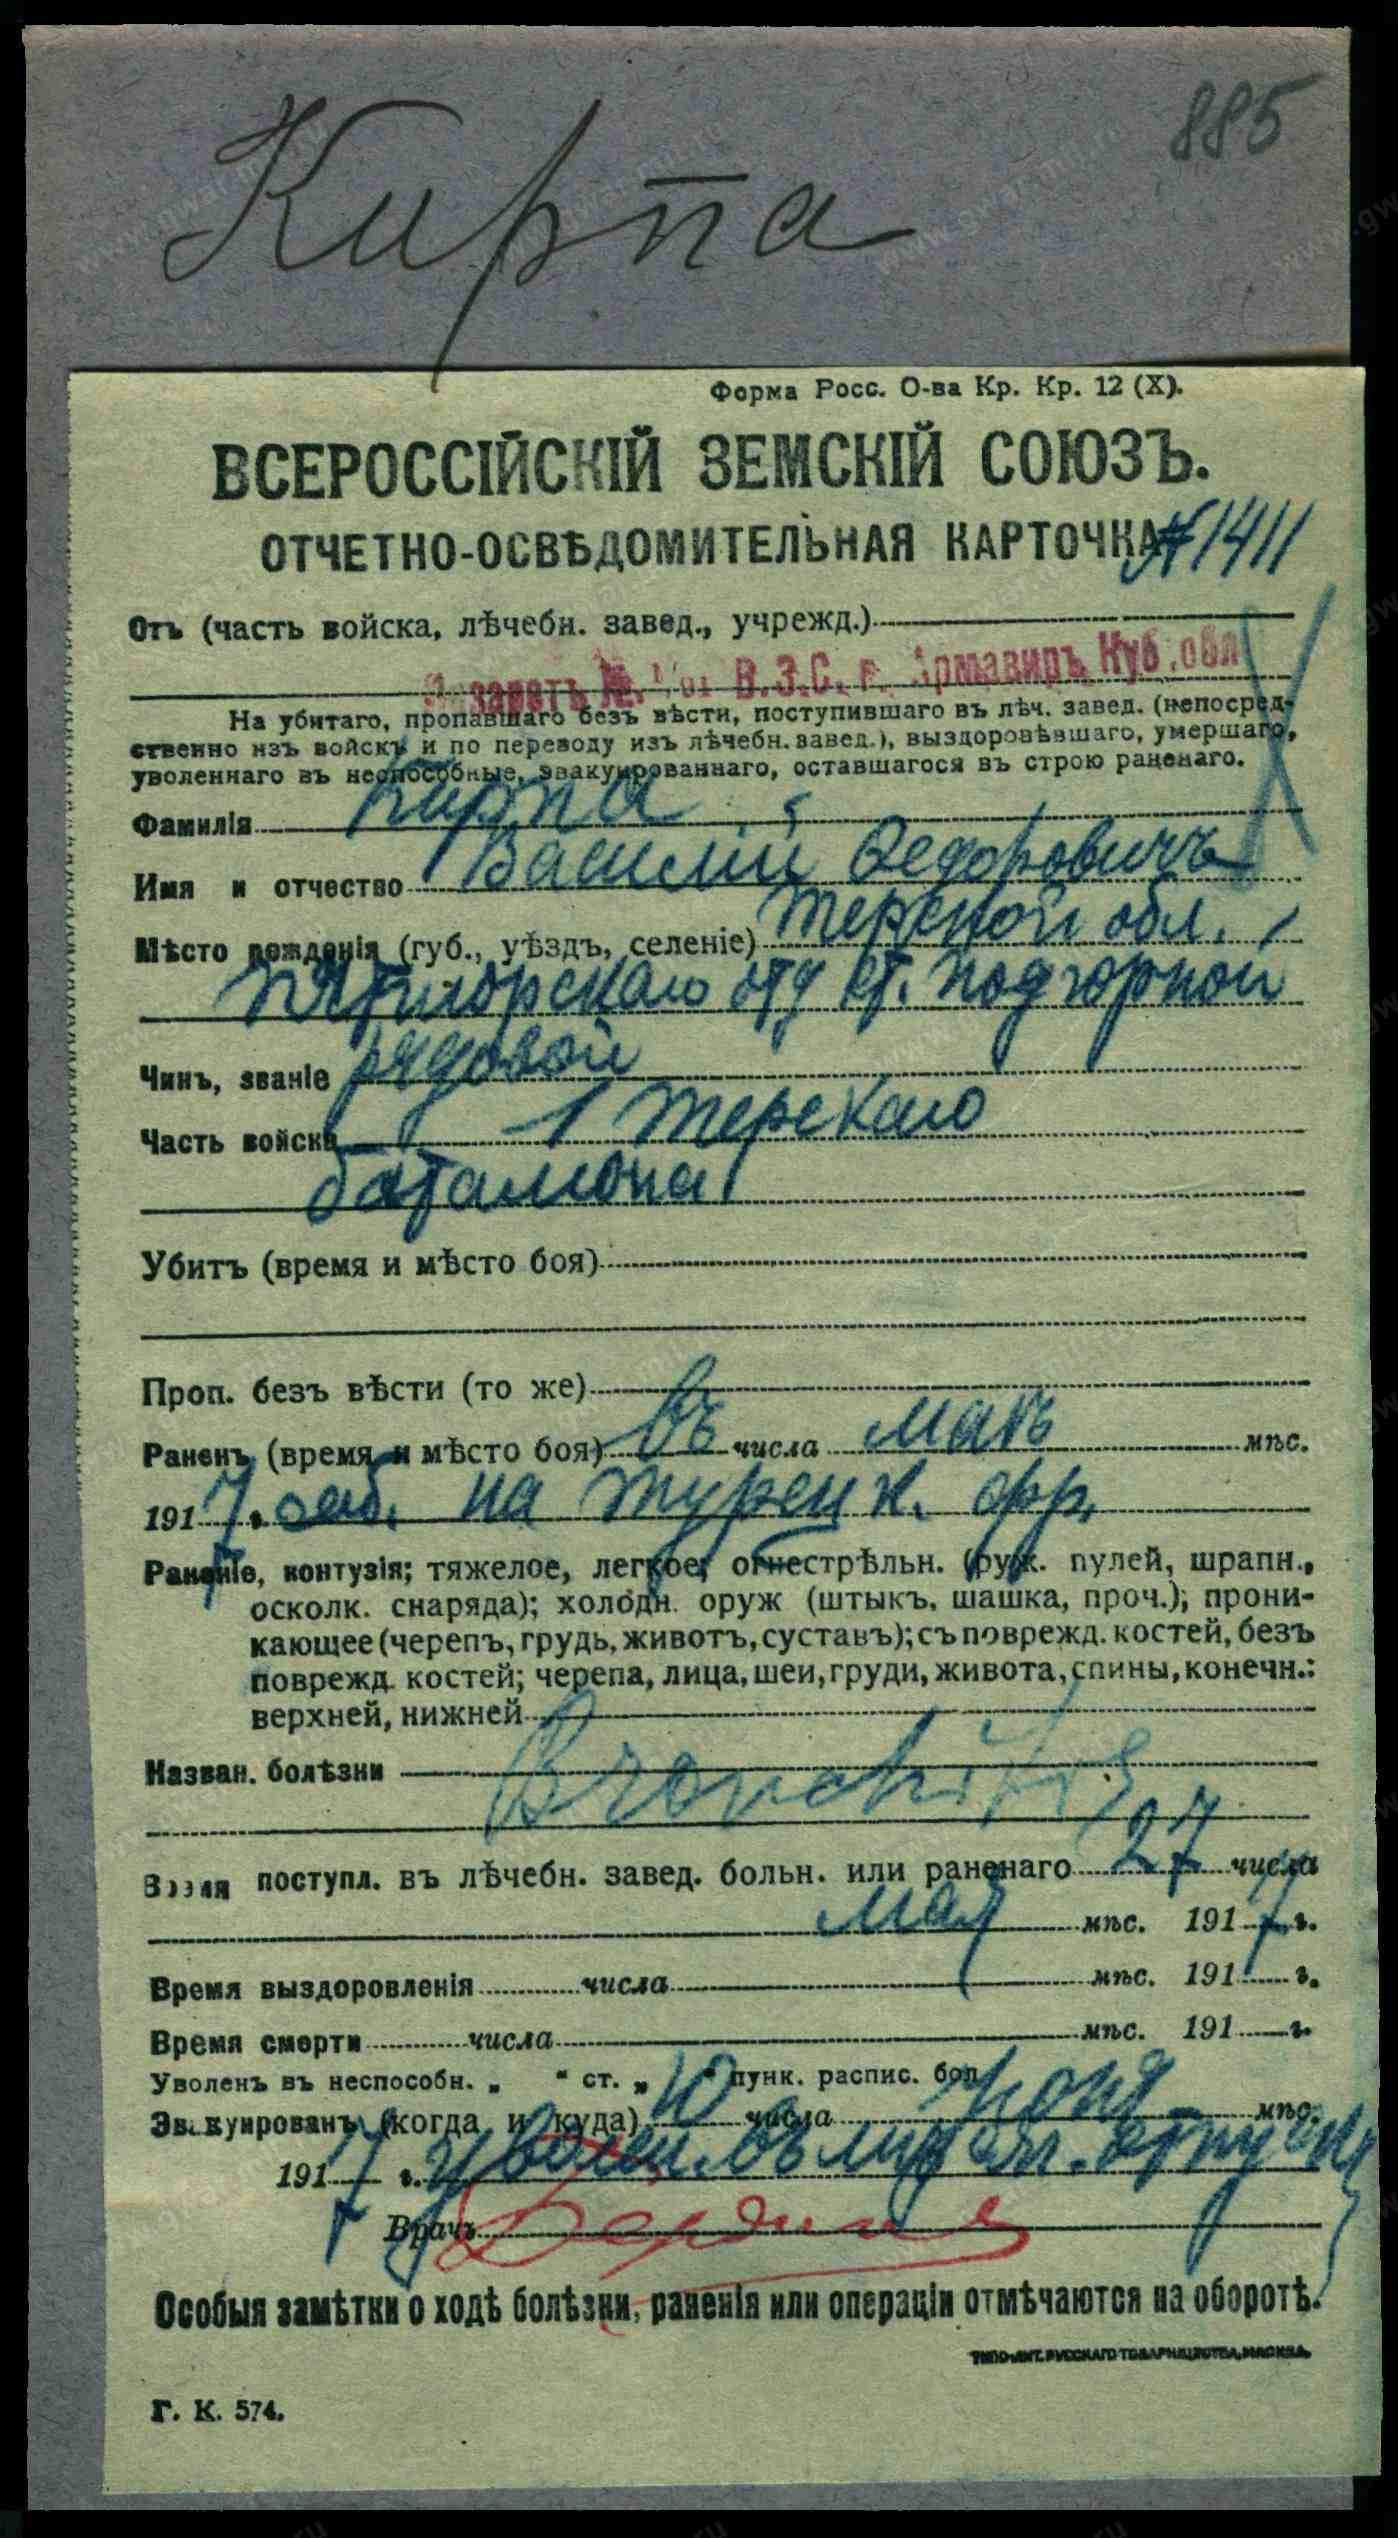 885
Кирпа
Форма Росс. О-ва Кр. Кр. 12 (X).
ВСЕРОССІЙСКІЙ ЗЕМСКІЙ СОЮЗЪ.
ОТЧЕТНО-ОСВѢДОМИТЕЛЬНАЯ КАРТОЧКА № 1411
Отъ (часть войска, лѣчебн. завед., учрежд.)
Лазаретъ №. В.З.С. г. Армавиръ, Куб. обл
На убитаго, пропавшаго безъ вѣсти, поступившаго въ лѣч. завед. (непосред-
ственно изъ войскъ и по переводу изъ лѣчебн. завед.), выздоровѣвшаго, умершаго,
уволеннаго въ неспособные, эвакуированнаго, оставшагося въ строю раненаго.
Фамилія Кирпа
Имя и отчество Василій Федоровичъ
Мѣсто рожденія (губ., уѣздъ, селеніе) Терской обл.
Пятигорскаго отд ст. Подгорной
Чинъ, званіе рядовой
Часть войска 1 Терскаго
баталіона
Убитъ (время и мѣсто боя)
Проп. безъ вѣсти (то же)
Раненъ (время и мѣсто боя) въ числа маѣ мѣс.
1917 г. заб. на турецк. фр.
Раненіе, контузія; тяжелое, легкое; огнестрѣльн. (руж. пулей, шрапн.,
осколк. снаряда); холодн. оруж (штыкъ, шашка, проч.); прони-
кающее (черепъ, грудь, животъ, суставъ); съ поврежд. костей, безъ
поврежд. костей; черепа, лица, шеи, груди, живота, спины, конечн.:
верхней, нижней
Назван. болѣзни Bronchitis
Время поступл. въ лѣчебн. завед. больн. или раненаго 27 числа
мая мѣс. 1917 г.
Время выздоровленія числа мѣс. 191 г.
Время смерти числа мѣс. 191 г.
Уволенъ въ неспособн. „ “ ст. „ “ пунк. распис. бол.
Эвакуированъ (когда и куда) 10 числа Іюня мѣс.
1917 г. уволен. въ отпускъ
Врачъ
Особыя замѣтки о ходѣ болѣзни, раненія или операціи отмѣчаются на оборотѣ.
ТИПО-ЛИТ. РУССКАГО ТОВАРИЩЕСТВА, МОСКВА.
Г. К. 574.